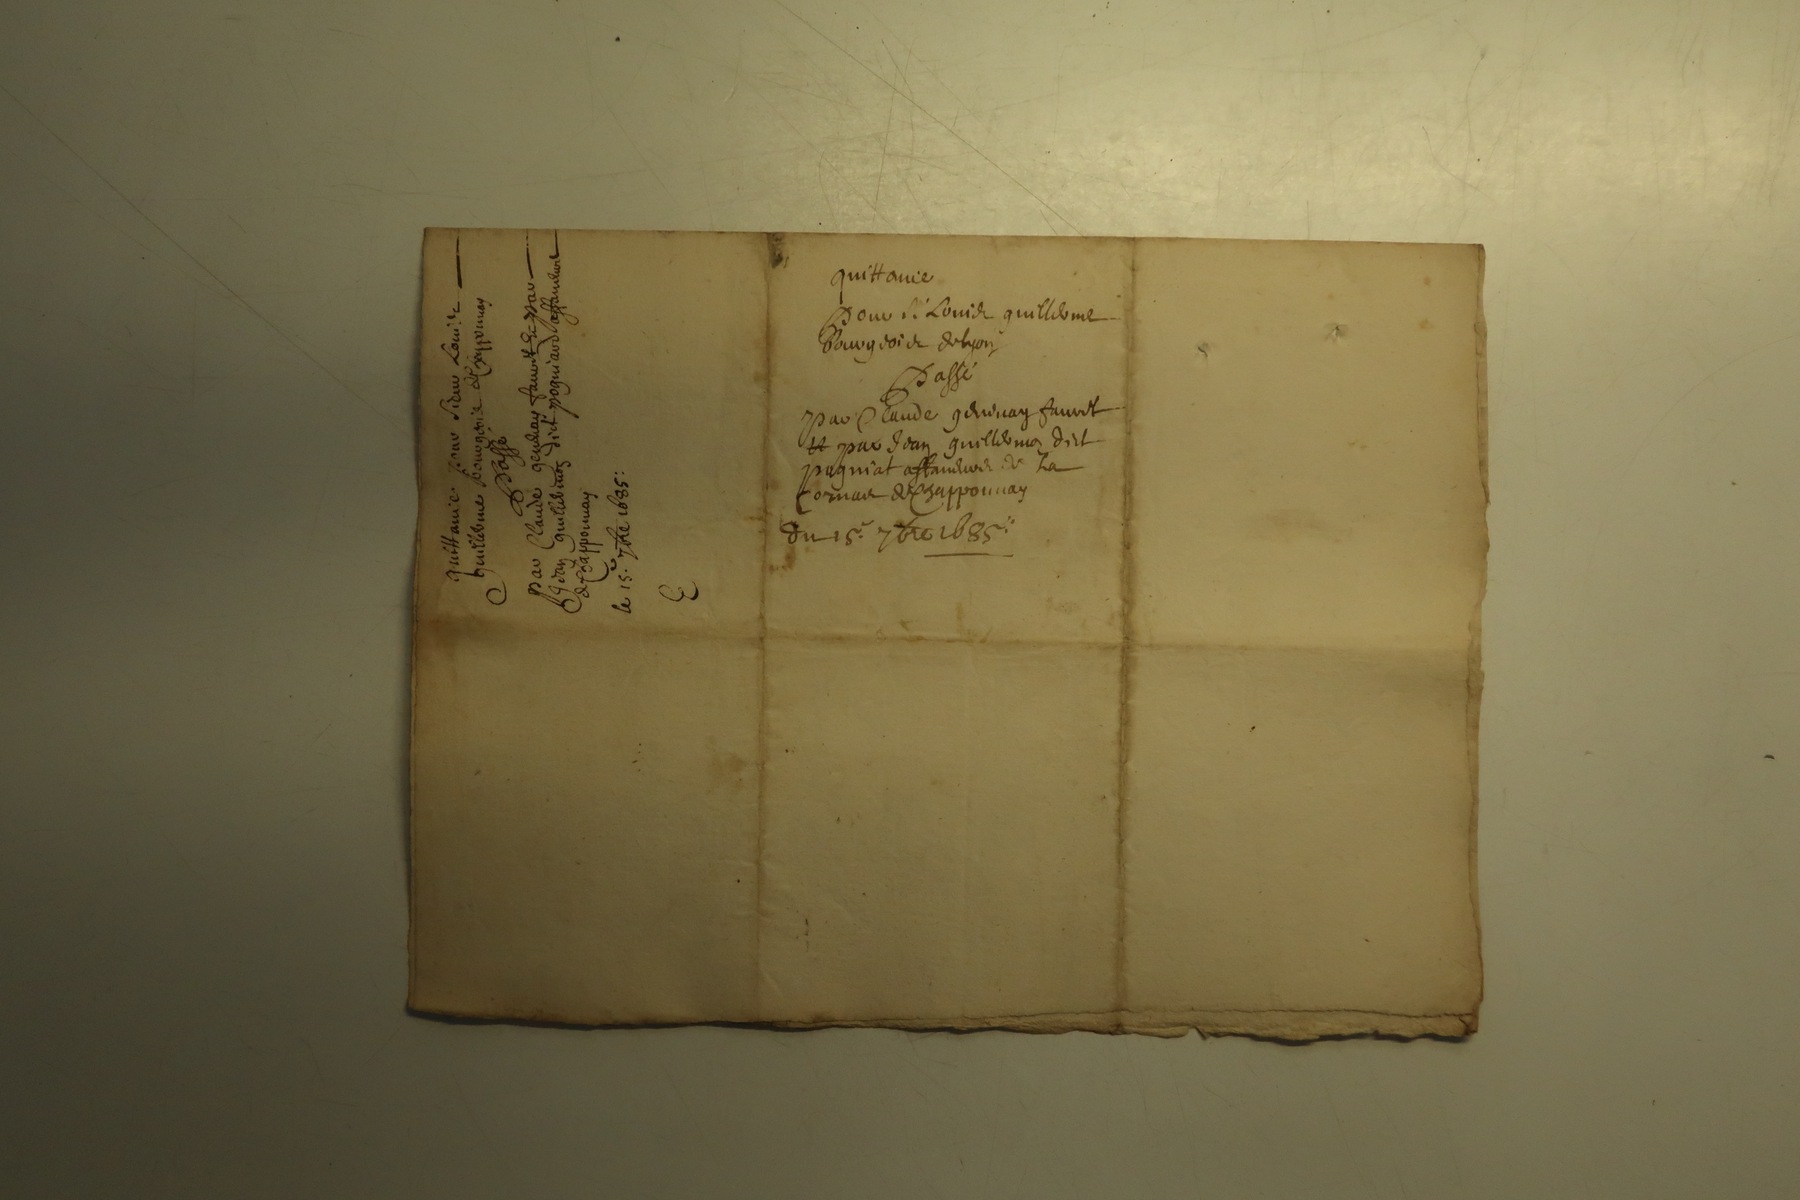 quittance pour sieur Louis
guillerme bourgeois de Chapponnay
Passé
par Claude gervnay fauret Et par
Jean guillermoz dict pogniard affaneurs
de Chapponnay
le 15e 7bre 1685:
quittance
Pour sr Louis guillerme
Bourgeois de Lyon
Passé
par Claude gervnay fauret
Et par Jean guillermoz dict
pogniat affaneurs de La
Cornas de Chapponnay
du 15e 7bre 1685: